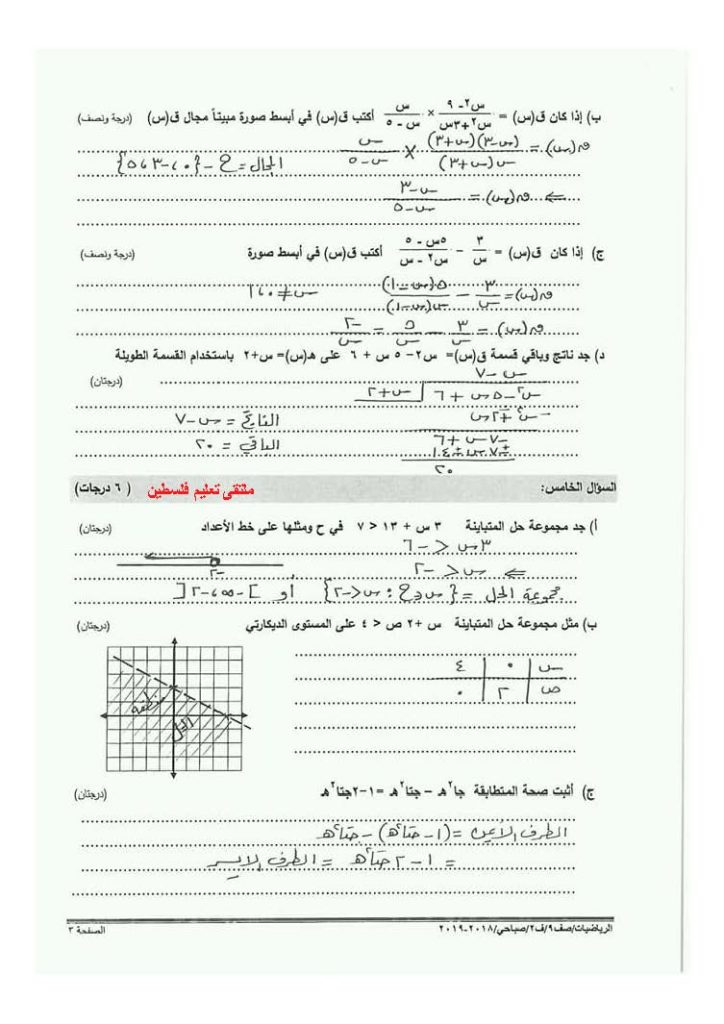 ب) إذا كان ق(س) = (س٢ - ٩)/(س٢ + ٣س) × س/(س - ٥) أكتب ق(س) في أبسط صورة مبيناً مجال ق(س) (درجة ونصف)
ق(س) = (س-٣)(س+٣)/س(س+٣) × س/(س-٥) المجال = ح - {٠، -٣، ٥}
⇐ ق(س) = (س-٣)/(س-٥)
ج) إذا كان ق(س) = ٣/س - (٥س - ٥)/(س٢ - س) أكتب ق(س) في أبسط صورة (درجة ونصف)
ق(س) = ٣/س - ٥(س-١)/س(س-١) س ≠ ٠، ١
ق(س) = ٣/س - ٥/س = -٢/س
د) جد ناتج وباقي قسمة ق(س)= س٢- ٥ س + ٦ على هـ(س)= س+٢ باستخدام القسمة الطويلة
(درجتان)
س - ٧
س+٢ س٢-٥س+٦
-س٢ ∓ ٢س
الناتج = س-٧
-٧س+٦
الباقي = ٢٠
±٧س±١٤
٢٠
السؤال الخامس: ملتقى تعليم فلسطين ( ٦ درجات)
أ) جد مجموعة حل المتباينة ٣ س + ١٣ < ٧ في ح ومثلها على خط الأعداد (درجتان)
٣س < -٦
⇐ س < -٢
-٢
مجموعة الحل = {س∈ح : س < -٢} أو ]-∞، -٢[
ب) مثل مجموعة حل المتباينة س +٢ ص < ٤ على المستوى الديكارتي (درجتان)
س ٠ ٤
ص ٢ ٠
منطقة
الحل
ج) أثبت صحة المتطابقة جا٢هـ – جتا٢هـ = ١-٢جتا٢هـ (درجتان)
الطرف الأيمن = (١- جتا٢هـ) - جتا٢هـ
= ١ - ٢ جتا٢هـ = الطرف الأيسر
الرياضيات/صف٩/ف٢/صباحي/٢٠١٨-٢٠١٩ الصفحة ٣